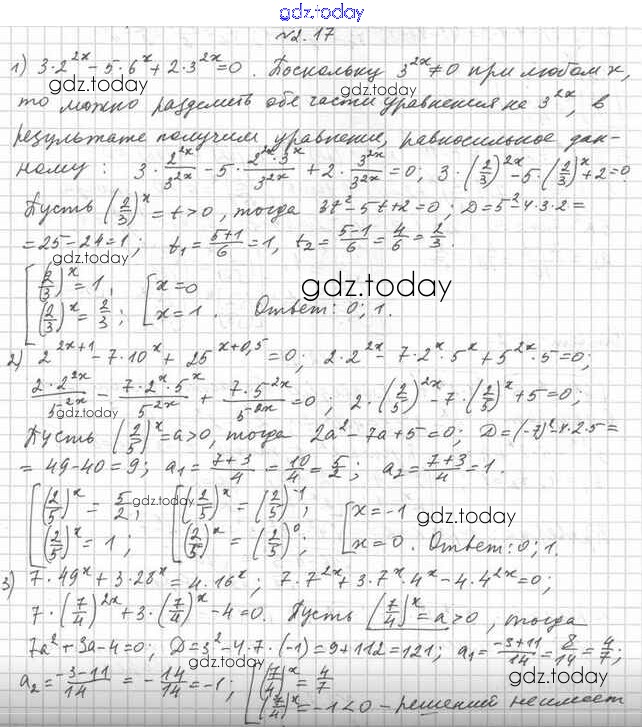 gdz.today
№2.17
1) 3·2^{2x} - 5·6^x + 2·3^{2x} = 0. Поскольку 3^{2x} ≠ 0 при любом x,
gdz.today gdz.today
то можно разделить обе части уравнения на 3^{2x}, в
результате получим уравнение, равносильное дан-
ному: 3·\frac{2^{2x}}{3^{2x}} - 5·\frac{2^x·3^x}{3^{2x}} + 2·\frac{3^{2x}}{3^{2x}} = 0, 3·(\frac{2}{3})^{2x} - 5·(\frac{2}{3})^x + 2 = 0
Пусть (\frac{2}{3})^x = t > 0, тогда 3t² - 5t + 2 = 0; D = 5² - 4·3·2 =
= 25 - 24 = 1; t₁ = \frac{5+1}{6} = 1, t₂ = \frac{5-1}{6} = \frac{4}{6} = \frac{2}{3}.
gdz.today
[(\frac{2}{3})^x = 1, [x = 0
gdz.today
(\frac{2}{3})^x = \frac{2}{3}; x = 1. Ответ: 0; 1.
2) 2^{2x+1} - 7·10^x + 25^{x+0,5} = 0; 2·2^{2x} - 7·2^x·5^x + 5^{2x}·5 = 0;
\frac{2·2^{2x}}{5^{-2x}} - \frac{7·2^x·5^x}{5^{-2x}} + \frac{7·5^{2x}}{5^{-2x}} = 0; 2·(\frac{2}{5})^{2x} - 7·(\frac{2}{5})^x + 5 = 0;
gdz.today
Пусть (\frac{2}{5})^x = a > 0, тогда 2a² - 7a + 5 = 0; D = (-7)² - 4·2·5 =
= 49 - 40 = 9; a₁ = \frac{7+3}{4} = \frac{10}{4} = \frac{5}{2}; a₂ = \frac{7+3}{4} = 1.
[(\frac{2}{5})^x = \frac{5}{2}; [(\frac{2}{5})^x = (\frac{2}{5})^{-1}; [x = -1
gdz.today gdz.today
(\frac{2}{5})^x = 1; (\frac{2}{5})^x = (\frac{2}{5})^0; x = 0. Ответ: 0; 1.
3) 7·49^x + 3·28^x = 4·16^x; 7·7^{2x} + 3·7^x·4^x - 4·4^{2x} = 0;
7·(\frac{7}{4})^{2x} + 3·(\frac{7}{4})^x - 4 = 0. Пусть (\frac{7}{4})^x = a > 0, тогда
7a² + 3a - 4 = 0; D = 3² - 4·7·(-1) = 9 + 112 = 121; a₁ = \frac{-3+11}{14} = \frac{8}{14} = \frac{4}{7};
gdz.today
a₂ = \frac{-3-11}{14} = -\frac{14}{14} = -1; [(\frac{7}{4})^x = \frac{4}{7}
gdz.today
(\frac{7}{4})^x = -1 < 0 - решений не имеет